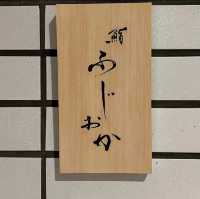 鮨
ふじ
おか